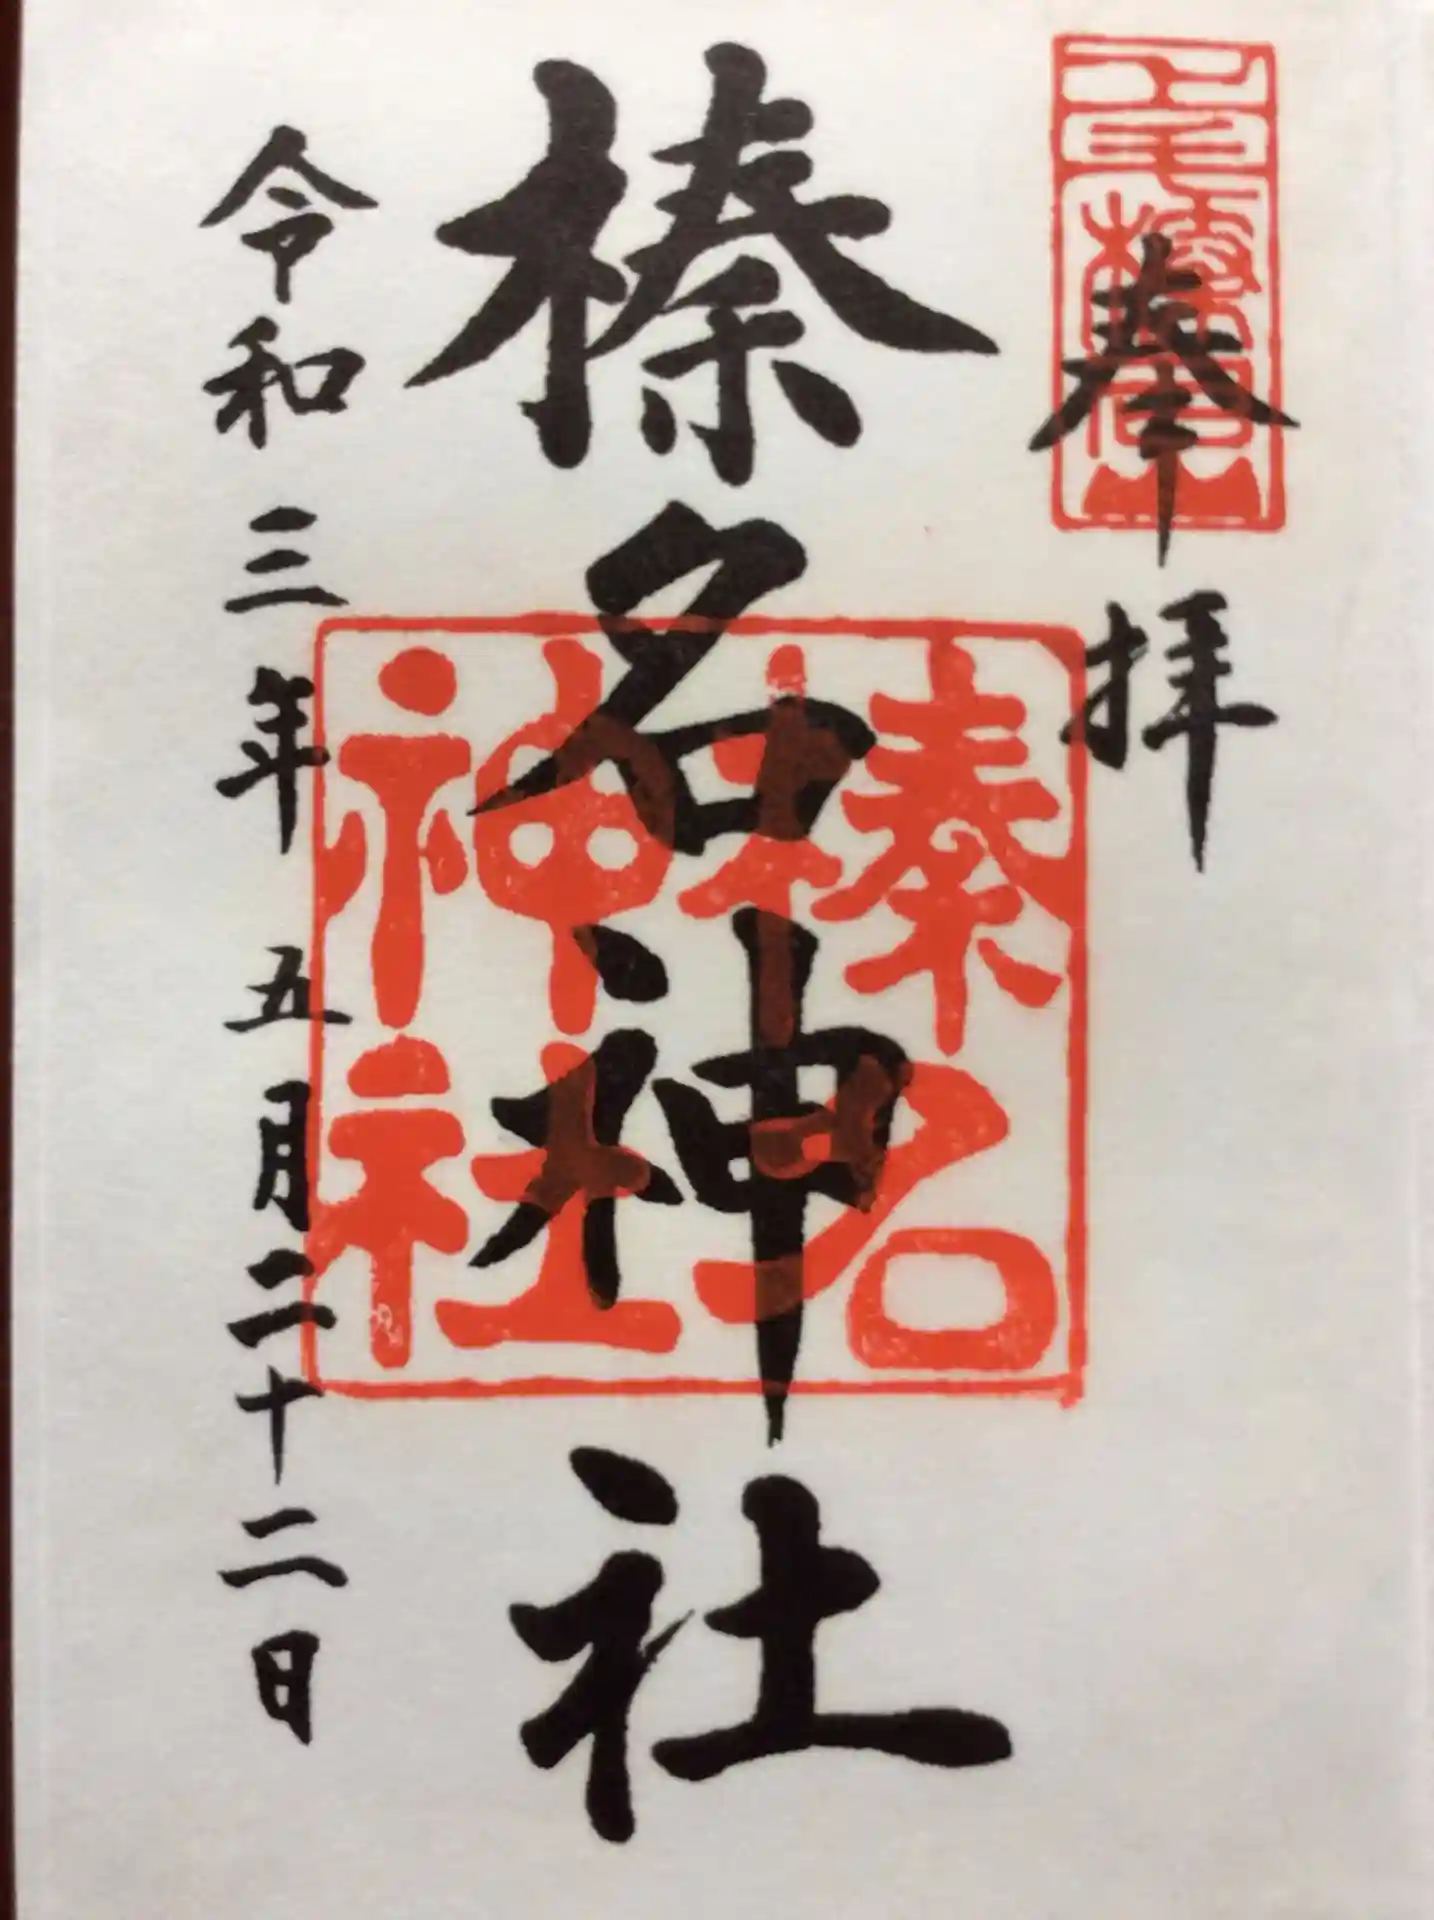 奉拝
上毛榛名山
榛名神社
榛名
神社
令和三年五月二十二日